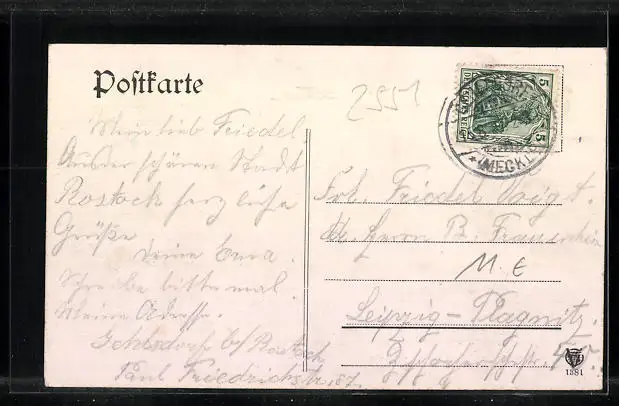 Postkarte
2551
Mein lieb Friedel.
Aus der schönen Stadt
Rostock herzliche
Grüße
Deine Erna.
Schreibe bitte mal.
Meine Adresse.
Gehlsdorf b/Rostock
Paul Friedrichstr.
DEUTSCHES REICH
5
5
(MECKL
Frl. Friedel Voigt.
b. Herrn B.
M. E
Leipzig-Plagwitz.
1381